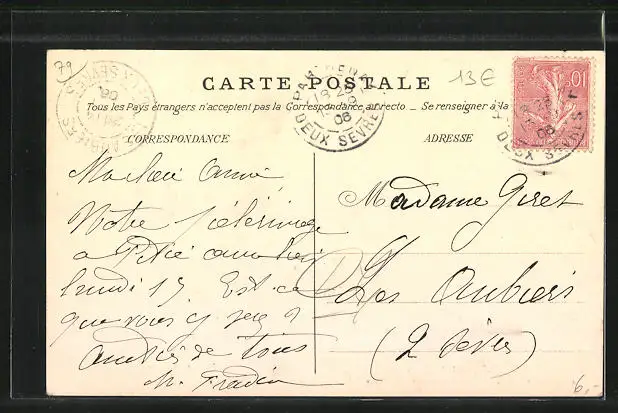 79
CARTE POSTALE
13€
Tous les Pays étrangers n'acceptent pas la Correspondance au recto. _ Se renseigner à la
CORRESPONDANCE
ADRESSE
PARTHENAY
DEUX SÈVRES
08
10
Ma chère amie
Notre pèlerinage
a Pitié aura lieu
lundi 15 Est-ce
que vous y serez ?
Amitiés de tous
M. Fradin
Madame Giret
Les Aubiers
(2 Sèvres)
6,-